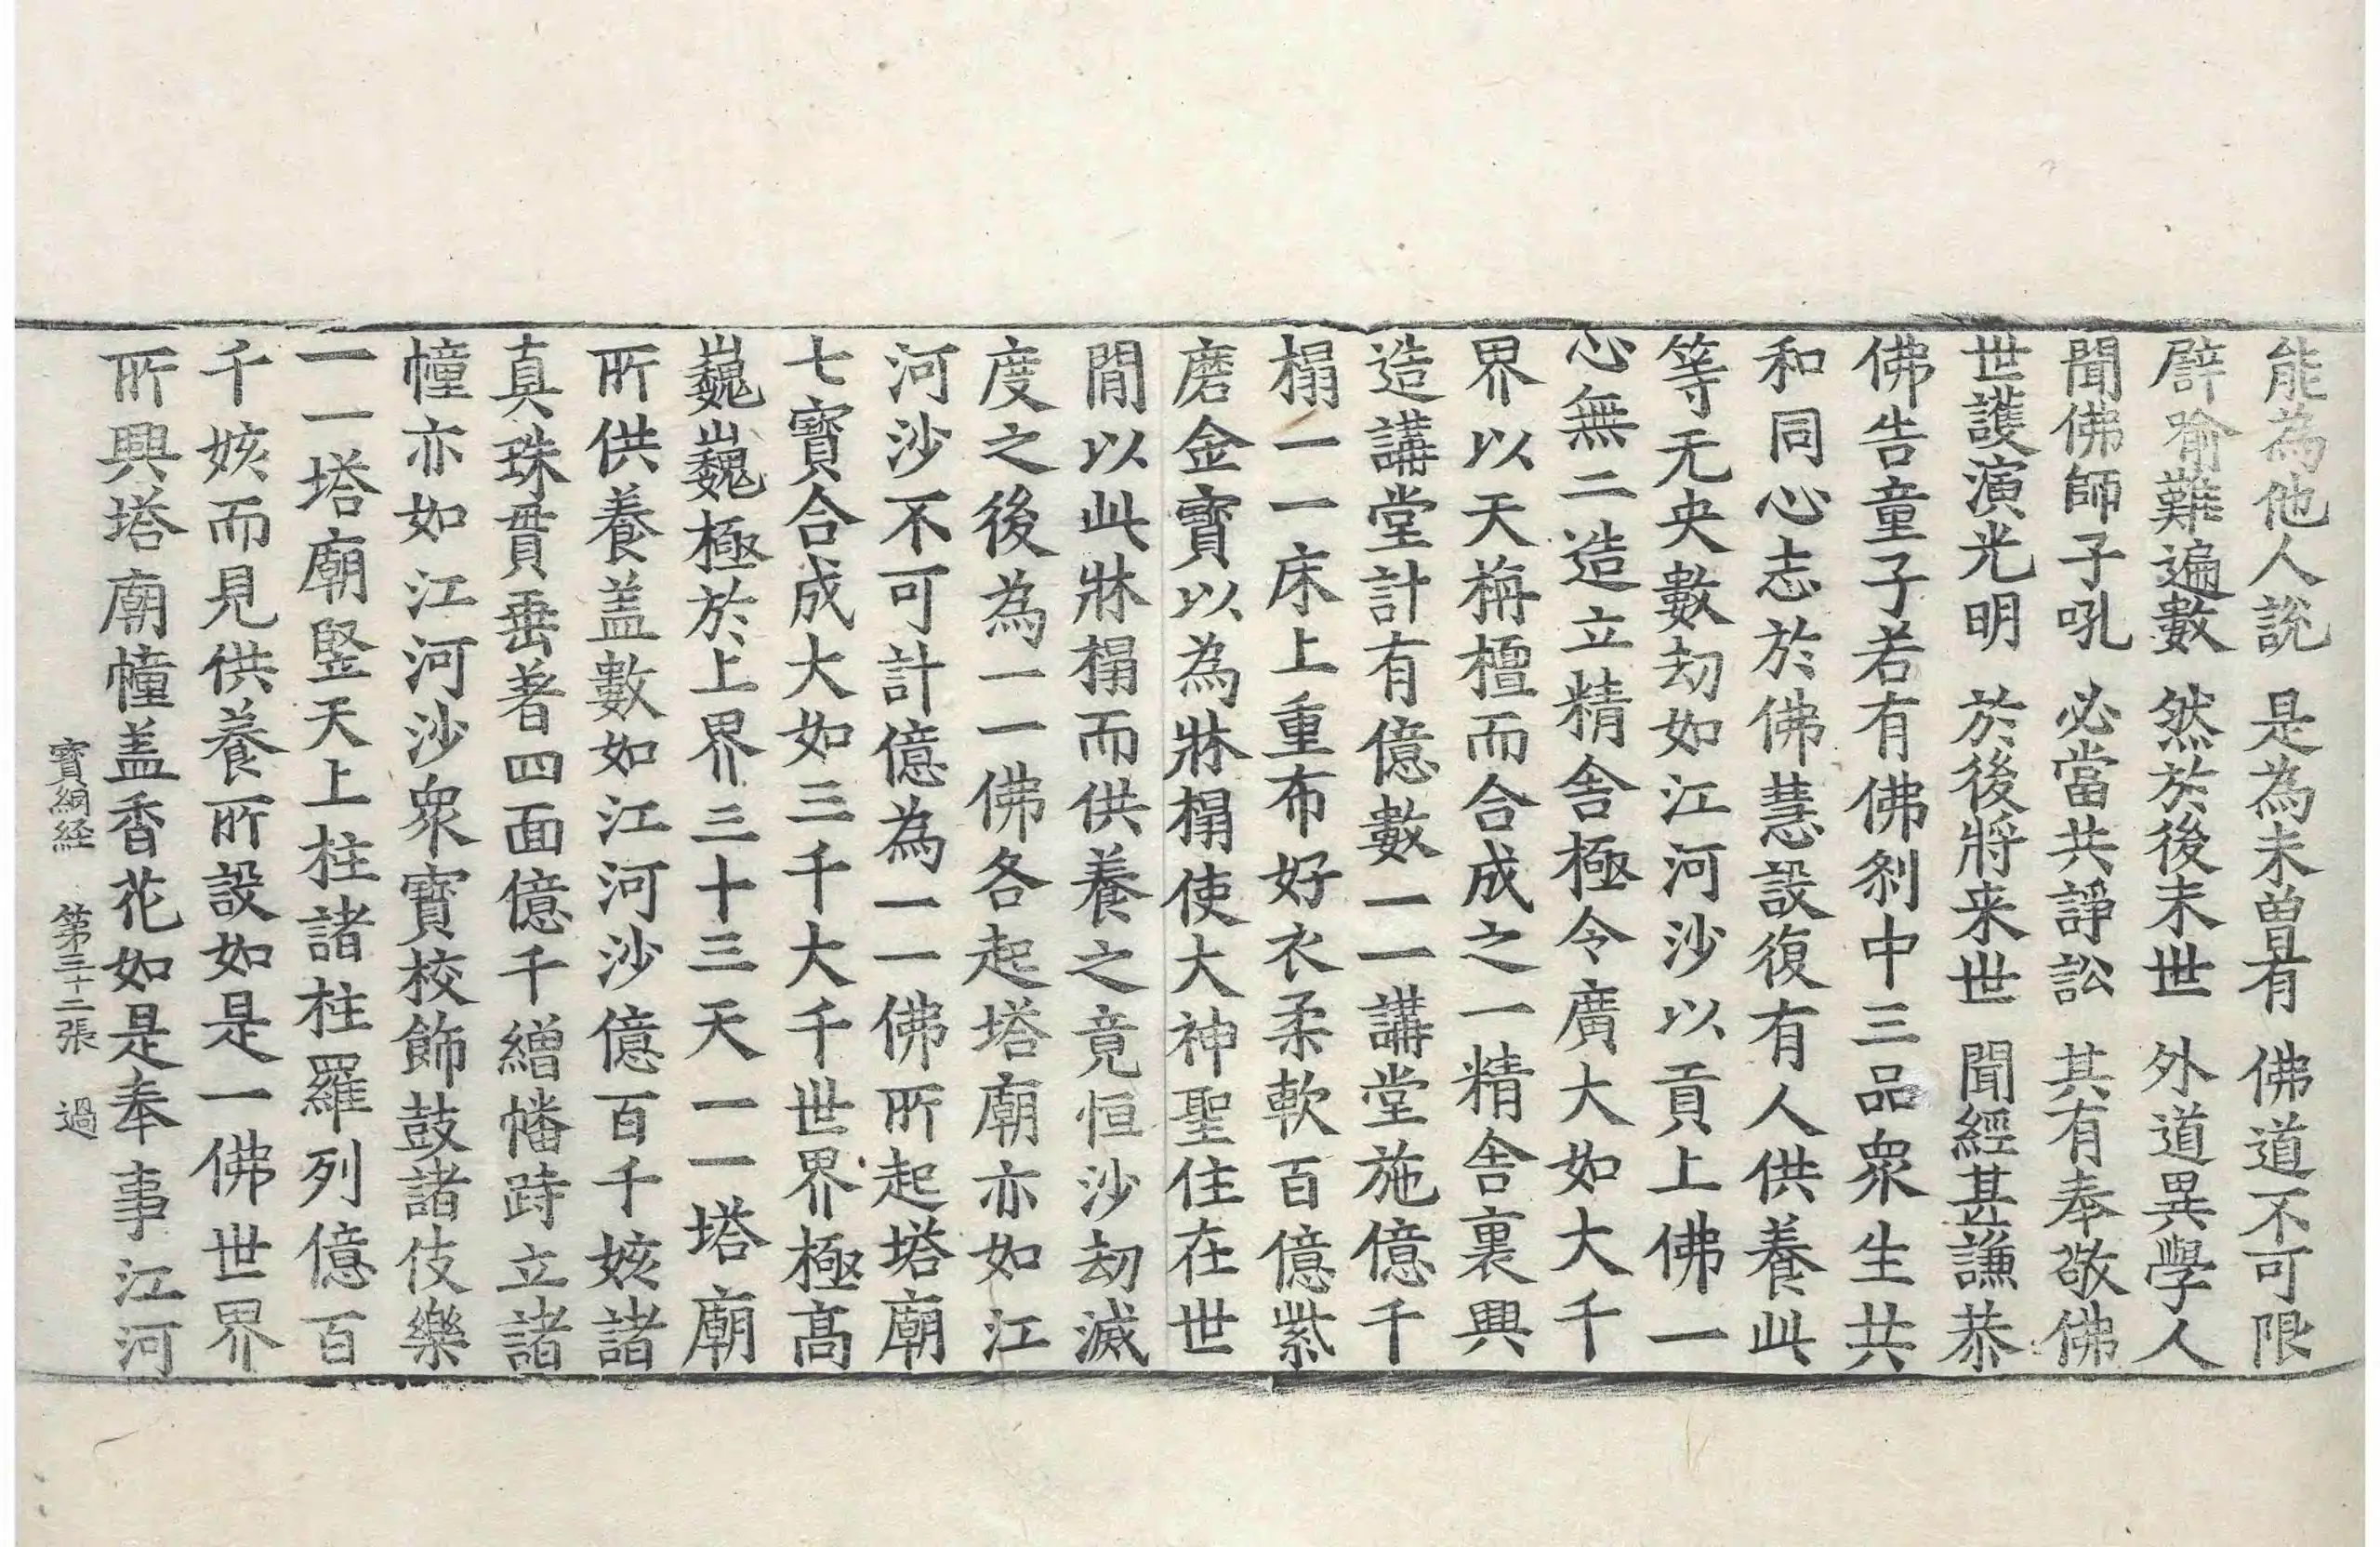 能為他人說　是為未曾有　佛道不可限
譬喻難遍數　然於後末世　外道異學人
聞佛師子吼　必當共諍訟　其有奉敬佛
世護演光明　於後將来世　聞經甚謙恭
佛告童子若有佛刹中三品衆生共
和同心志於佛慧設復有人供養此
等无央數劫如江河沙以貢上佛一
心無二造立精舍極令廣大如大千
界以天栴檀而合成之一精舍裏興
造講堂計有億數一一講堂施億千
榻一一床上重布好衣柔軟百億紫
磨金寶以為牀榻使大神聖住在世
閒以此牀榻而供養之竟恒沙劫滅
度之後為一一佛各起塔廟亦如江
河沙不可計億為一一佛所起塔廟
七寶合成大如三千大千世界極髙
巍巍極於上界三十三天一一塔廟
所供養盖數如江河沙億百千姟諸
真珠貫垂著四面億千繒幡跱立諸
幢亦如江河沙衆寶校飾鼓諸伎樂
一一塔廟竪天上柱諸柱羅列億百
千姟而見供養所設如是一佛世界
所興塔廟幢盖香花如是奉事江河
寶網経　第三十二張　過